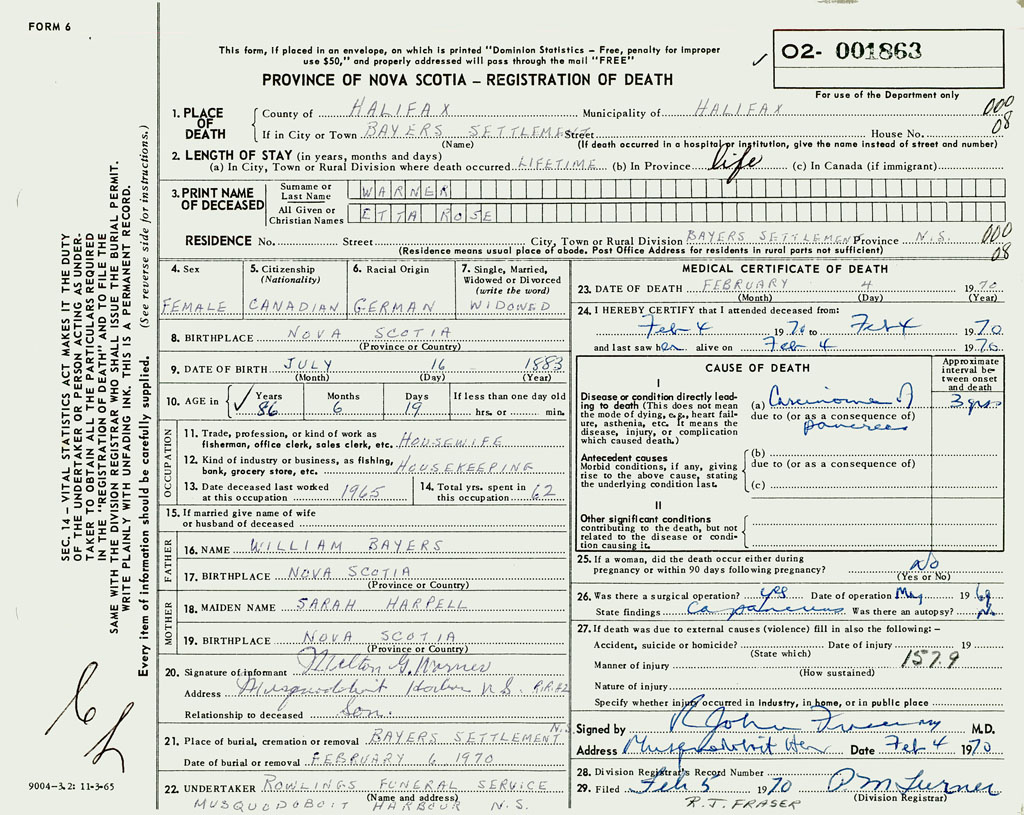 FORM 6
This form, if placed in an envelope, on which is printed "Dominion Statistics – Free, penalty for improper
use $50," and properly addressed will pass through the mail "FREE"
PROVINCE OF NOVA SCOTIA – REGISTRATION OF DEATH
✓ 02- 001863
For use of the Department only
1. PLACE OF DEATH
County of HALIFAX Municipality of HALIFAX 000
If in City or Town BAYERS SETTLEMENT Street House No. 08
(Name) (If death occurred in a hospital or institution, give the name instead of street and number)
2. LENGTH OF STAY (in years, months and days)
(a) In City, Town or Rural Division where death occurred LIFETIME (b) In Province life (c) In Canada (if immigrant)
3. PRINT NAME OF DECEASED
Surname or Last Name WARNER
All Given or Christian Names ETTA ROSE
RESIDENCE No. Street City, Town or Rural Division BAYERS SETTLEMENT Province N.S. 000
(Residence means usual place of abode. Post Office Address for residents in rural parts not sufficient) 08
4. Sex FEMALE
5. Citizenship (Nationality) CANADIAN
6. Racial Origin GERMAN
7. Single, Married, Widowed or Divorced (write the word) WIDOWED
8. BIRTHPLACE NOVA SCOTIA
(Province or Country)
9. DATE OF BIRTH JULY 16 1883
(Month) (Day) (Year)
10. AGE in ✓ Years 86 Months 6 Days 19 If less than one day old hrs. or min.
OCCUPATION
11. Trade, profession, or kind of work as
fisherman, office clerk, sales clerk, etc. HOUSEWIFE
12. Kind of industry or business, as fishing,
bank, grocery store, etc. HOUSEKEEPING
13. Date deceased last worked
at this occupation 1965
14. Total yrs. spent in
this occupation 62
15. If married give name of wife
or husband of deceased
FATHER
16. NAME WILLIAM BAYERS
17. BIRTHPLACE NOVA SCOTIA
(Province or Country)
MOTHER
18. MAIDEN NAME SARAH HARPELL
19. BIRTHPLACE NOVA SCOTIA
(Province or Country)
20. Signature of informant Melton G. Warner
Address Musquodoboit Harbour N.S. R.R.#2
Relationship to deceased Son.
21. Place of burial, cremation or removal BAYERS SETTLEMENT N.S.
Date of burial or removal FEBRUARY 6 1970
22. UNDERTAKER ROWLINGS FUNERAL SERVICE
(Name and address)
MUSQUODOBOIT HARBOUR N.S.
MEDICAL CERTIFICATE OF DEATH
23. DATE OF DEATH FEBRUARY 4 1970
(Month) (Day) (Year)
24. I HEREBY CERTIFY that I attended deceased from:
Feb 4 1970 to Feb 4 1970
and last saw her alive on Feb 4 1970
CAUSE OF DEATH
Approximate interval between onset and death
I
Disease or condition directly lead-
ing to death (This does not mean
the mode of dying, e.g., heart fail-
ure, asthenia, etc. It means the
disease, injury, or complication
which caused death.)
(a) Carcinoma of 3 yrs
due to (or as a consequence of)
pancreas
Antecedent causes
Morbid conditions, if any, giving
rise to the above cause, stating
the underlying condition last.
(b)
due to (or as a consequence of)
(c)
II
Other significant conditions
contributing to the death, but not
related to the disease or condi-
tion causing it.
25. If a woman, did the death occur either during
pregnancy or within 90 days following pregnancy? No
(Yes or No)
26. Was there a surgical operation? yes Date of operation May 1969
State findings Ca pancreas Was there an autopsy? No
27. If death was due to external causes (violence) fill in also the following: –
Accident, suicide or homicide? Date of injury 19
(State which) 157.9
Manner of injury
(How sustained)
Nature of injury
Specify whether injury occurred in Industry, in home, or in public place
Signed by R John Fraser MD M.D.
Address Musquodoboit Hbr Date Feb 4 1970
28. Division Registrar's Record Number
29. Filed Feb 5 1970 PM Turner
(Division Registrar)
R.J. FRASER
SEC. 14 – VITAL STATISTICS ACT MAKES IT THE DUTY
OF THE UNDERTAKER OR PERSON ACTING AS UNDER-
TAKER TO OBTAIN ALL THE PARTICULARS REQUIRED
IN THE "REGISTRATION OF DEATH" AND TO FILE THE
SAME WITH THE DIVISION REGISTRAR WHO SHALL ISSUE THE BURIAL PERMIT.
WRITE PLAINLY WITH UNFADING INK. THIS IS A PERMANENT RECORD.
Every item of information should be carefully supplied. (See reverse side for instructions.)
9004-3.2: 11-3-65